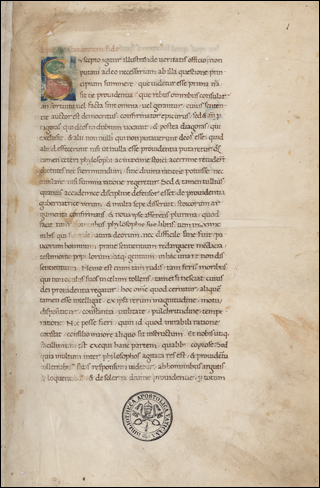 Suscepto igitur illustrande veritatis officio: non
putaui adeo necessarium ab illa questione prin
cipium sumere: que uidetur esse prima na
sit ne prouidentia: que rebus omnibus consulat
an fortuitu uel facta sint omnia: uel gerantur. cuius senten
tie auctor est democritus: confirmator epicurus. sed &
goras qui deos in dubium uocauit: & postea diagoras: qui
exclusit: & alii non nulli qui non putauerunt deos esse: quid
aliud effecerunt nisi ut nulla esse prouidentia putaretur: quos
tamen ceteri philosophi ac maxime stoici acerrime retuderunt
nec fieri mundum sine diuina ratione potuisse: nec
constare nisi summa ratione regeretur. Sed & tamen tullius
quamuis academice discipline defensor esset: de prouidentia
gubernatrice rerum & multa & sepe disseruit: stoicorum ar
gumenta confirmans: & noua ipse afferens plurima: quod
facit tum omnibus philosophie sue libris: tum maxime
de natura deorum. nec difficile sane fuit pau
corum hominum praue sentientium redarguere mendacia
testimonio populorum atque gentium in hac una re non dis
sentientium. Nemo est enim tam rudis: tam feris moribus
qui non oculos suos in celum tollens: tametsi nesciat: cuius
dei prouidentia regatur hoc omne quod cernitur: aliquam
tamen esse intelligat: ex ipsa rerum magnitudine: motu:
dispositione: constantia: utilitate: pulchritudine: tempe
ratione: Nec posse fieri: quin id quod mirabili ratione
constat: consilio maiore aliquo sit instructum. Et nobis utique
facillimum est exequi hanc partem: quamlibet copiose. Sed
quia multum inter philosophos agitata res est: & prouidentiam
tollentibus satis responsum uidetur: ab hominibus argutis
& eloquentibus: & de solertia diuine prouidentie
BIBLIOTHECA APOSTOLICA VATICANA